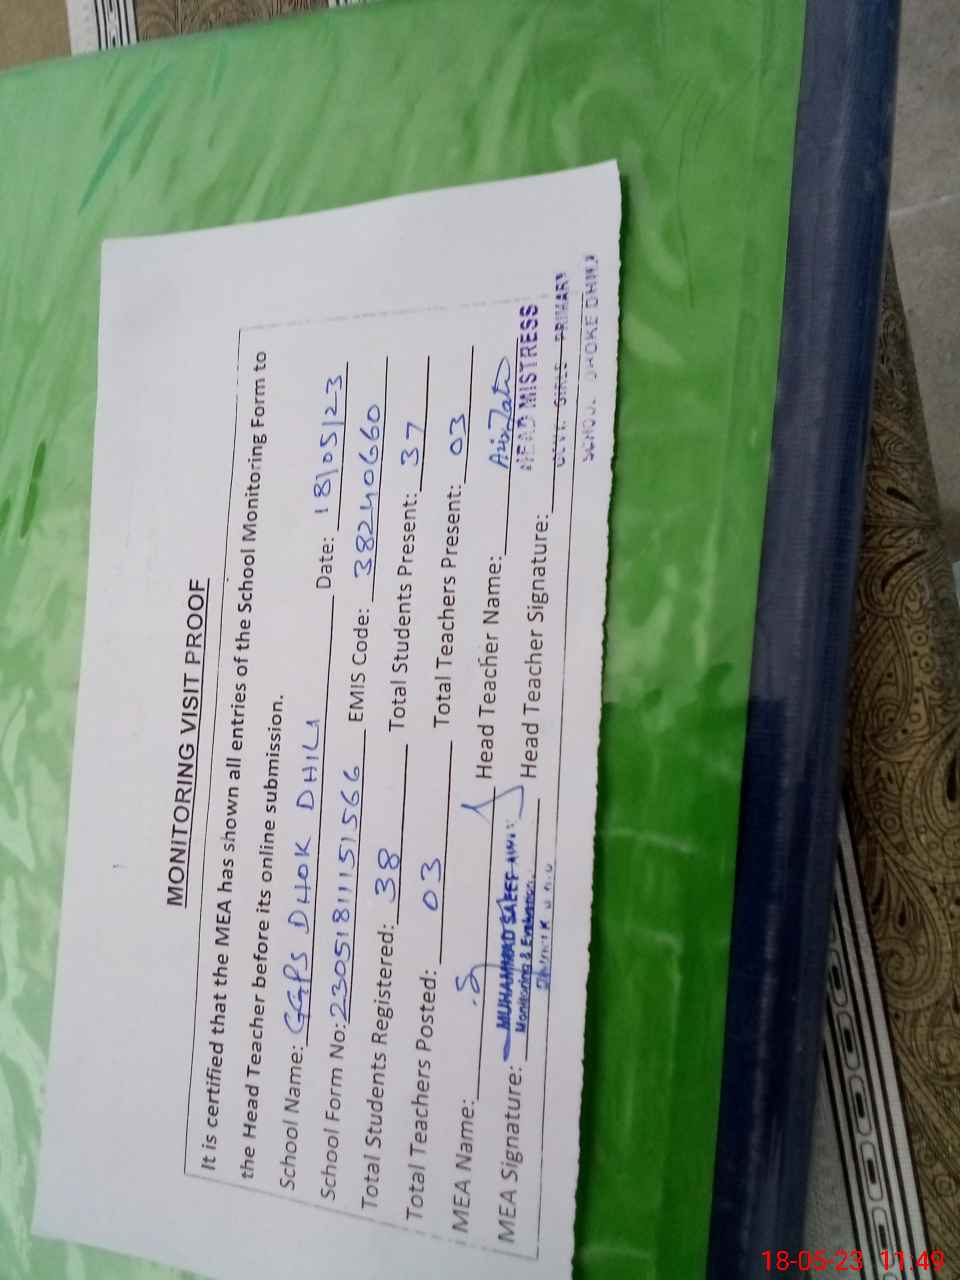 MONITORING VISIT PROOF
It is certified that the MEA has shown all entries of the School Monitoring Form to
the Head Teacher before its online submission.
School Name: GGPS DHOK DHILI Date: 18/05/23
School Form No: 230518111151566 EMIS Code: 38240660
Total Students Registered: 38 Total Students Present: 37
Total Teachers Posted: 03 Total Teachers Present: 03
MEA Name: Head Teacher Name:
MEA Signature: MUHAMMAD SAEED Head Teacher Signature: HEAD MISTRESS
Monitoring & Evaluation. GOVT. GIRLS PRIMARY
SCHOOL DHOKE
18-05-23 11:49